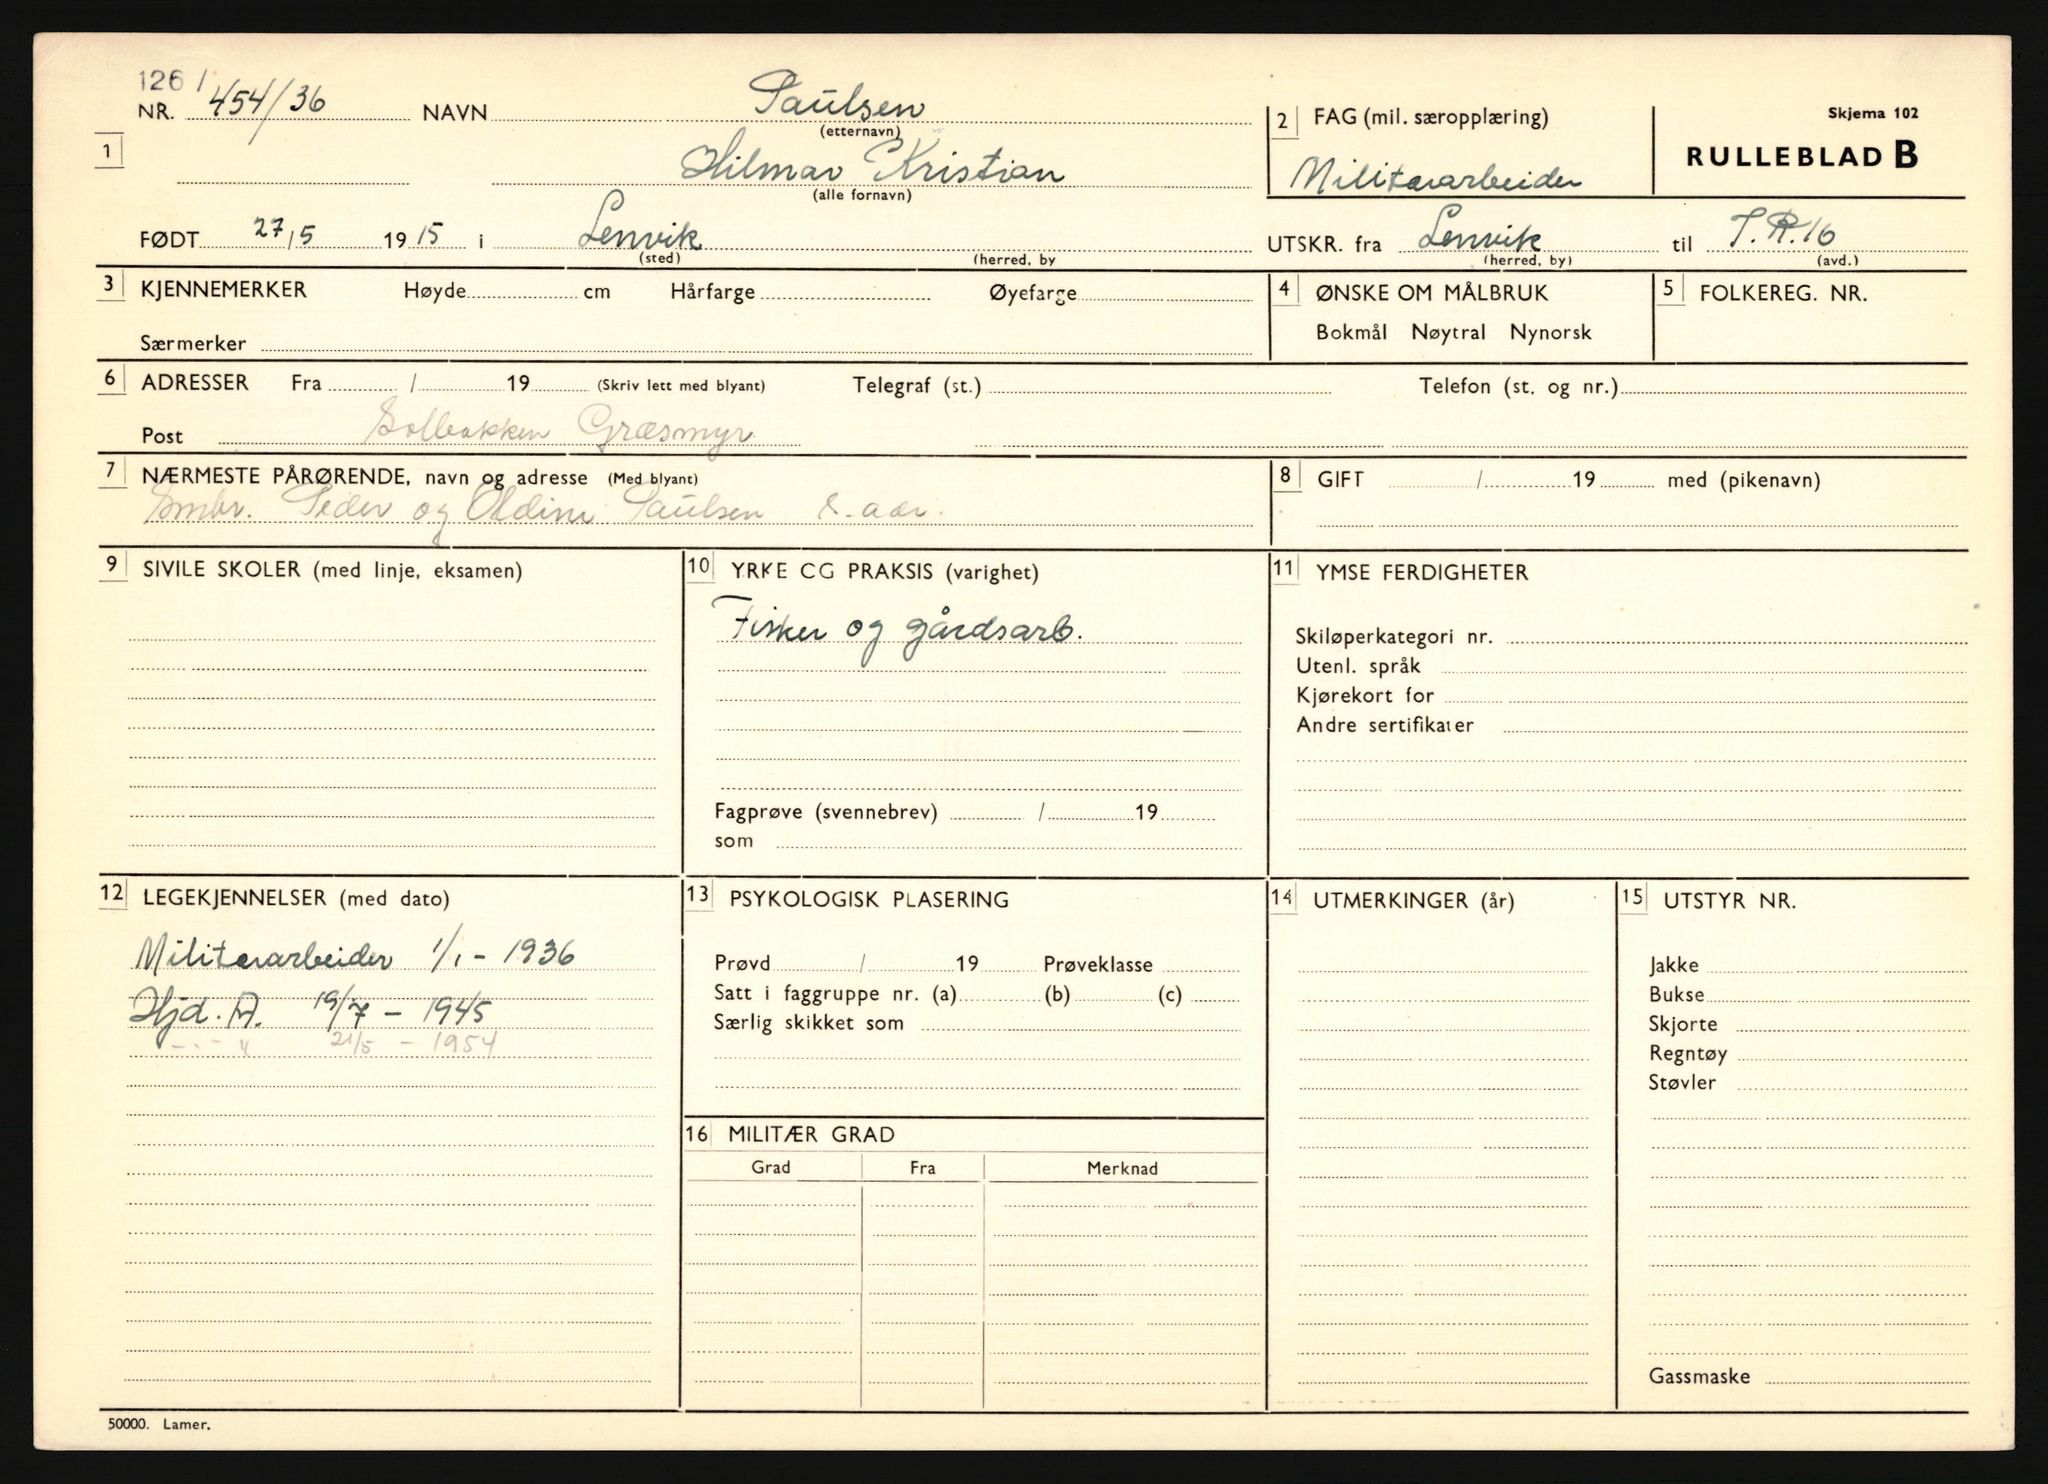 126 /
NR. 454/36 NAVN Paulsen
(etternavn)
2 FAG (mil. særopplæring)
Skjema 102
RULLEBLAD B
1
Hilmar Kristian
(alle fornavn)
Militærarbeider
FØDT 27/5 1915 i Lenvik
(sted) (herred, by
UTSKR. fra Lenvik til I.R.16
(herred, by) (avd.)
3 KJENNEMERKER Høyde cm Hårfarge Øyefarge
Særmerker
4 ØNSKE OM MÅLBRUK
Bokmål Nøytral Nynorsk
5 FOLKEREG. NR.
6 ADRESSER Fra / 19 (Skriv lett med blyant) Telegraf (st.) Telefon (st. og nr.)
Post Solbakken Græsmyr
7 NÆRMESTE PÅRØRENDE, navn og adresse (Med blyant)
Smbr. Peder og Oldine Paulsen s. adr.
8 GIFT / 19 med (pikenavn)
9 SIVILE SKOLER (med linje, eksamen)
10 YRKE CG PRAKSIS (varighet)
Fisker og gårdsarb.
Fagprøve (svennebrev) / 19
som
11 YMSE FERDIGHETER
Skiløperkategori nr.
Utenl. språk
Kjørekort for
Andre sertifikater
12 LEGEKJENNELSER (med dato)
Militærarbeider 1/1 - 1936
Hjd. A. 19/7 - 1945
- . - " 21/5 - 1954
13 PSYKOLOGISK PLASERING
Prøvd / 19 Prøveklasse
Satt i faggruppe nr. (a) (b) (c)
Særlig skikket som
14 UTMERKINGER (år)
15 UTSTYR NR.
Jakke
Bukse
Skjorte
Regntøy
Støvler
Gassmaske
16 MILITÆR GRAD
Grad Fra Merknad
50000. Lamer.